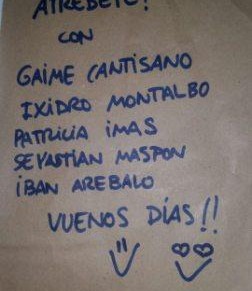 ATREBETE!
CON
GAIME CANTISANO
IXIDRO MONTALBO
PATRICIA IMAS
SEYASTIAN MASPON
IBAN AREBALO
VUENOS DÍAS!!